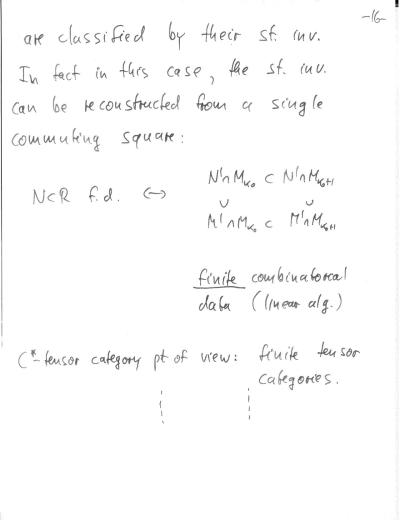 -16-
are classified by their st. inv.
In fact in this case, the st. inv.
can be reconstructed from a single
commuting square:
N'∩M_{k_0} ⊂ N'∩M_{k_0+1}
N⊂R f.d. ↔ ∪ ∪
M'∩M_{k_0} ⊂ M'∩M_{k_0+1}
finite combinatorial
data (linear alg.)
C*-tensor category pt of view: finite tensor
categories.